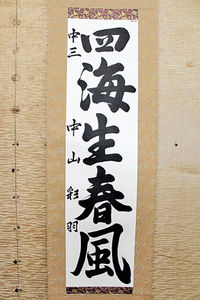 四海生春風
中三 中山 彩羽